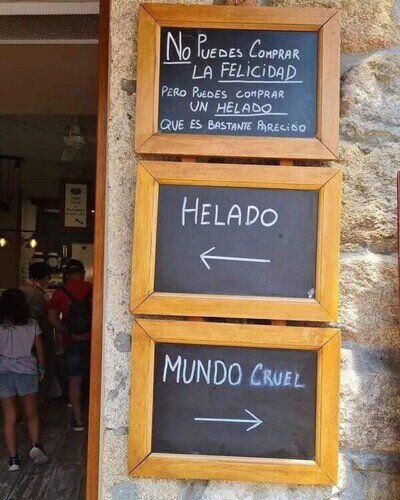 NO PUEDES COMPRAR
LA FELICIDAD
PERO PUEDES COMPRAR
UN HELADO
QUE ES BASTANTE PARECIDO
HELADO
←
MUNDO CRUEL
→